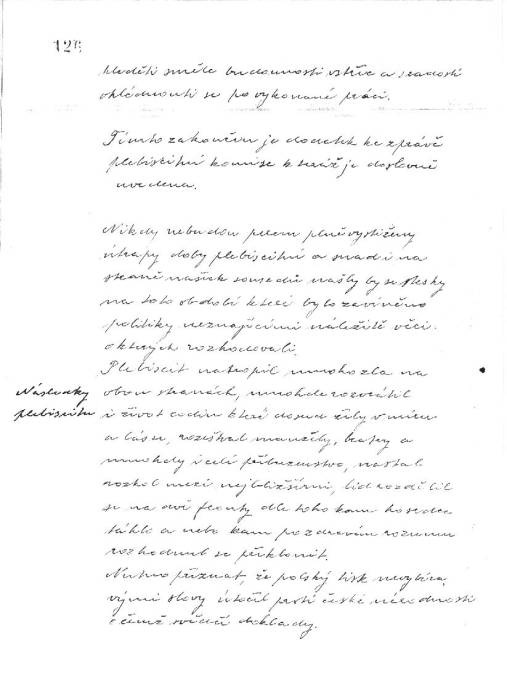 125
hleděti směle budoucnosti vstříc a s radostí
ohlédnouti se po vykonané práci.
Tímto zakončen je dodatek ke zprávě
plebiscitní komise kteráž je doslovně
uvedena.
Nikdy nebudou perem plně vystiženy
útrapy doby plebiscitní a snad i na
straně našich sousedů našly by se stesky
na toto období které bylo zaviněno
politiky neznajícími náležitě věci
o kterých rozhodovali.
Plebiscit natropil mnoho zla na
Následky
plebiscitu
obou stranách, mnohde rozvrátil
i život rodin které dosud žily v míru
a lásce, rozeštval manžely, bratry a
mnohdy i celé příbuzenstvo, nastal
rozkol mezi nejbližšími, lid rozdělil
se na dvě fronty dle toho kam ho srdce
táhlo a nebo kam po zdravém rozumu
rozhodnul se přiklonit.
Nutno přiznat, že polský tisk nevybíra-
vými slovy útočil proti české národnosti
o čemž svědčí doklady.